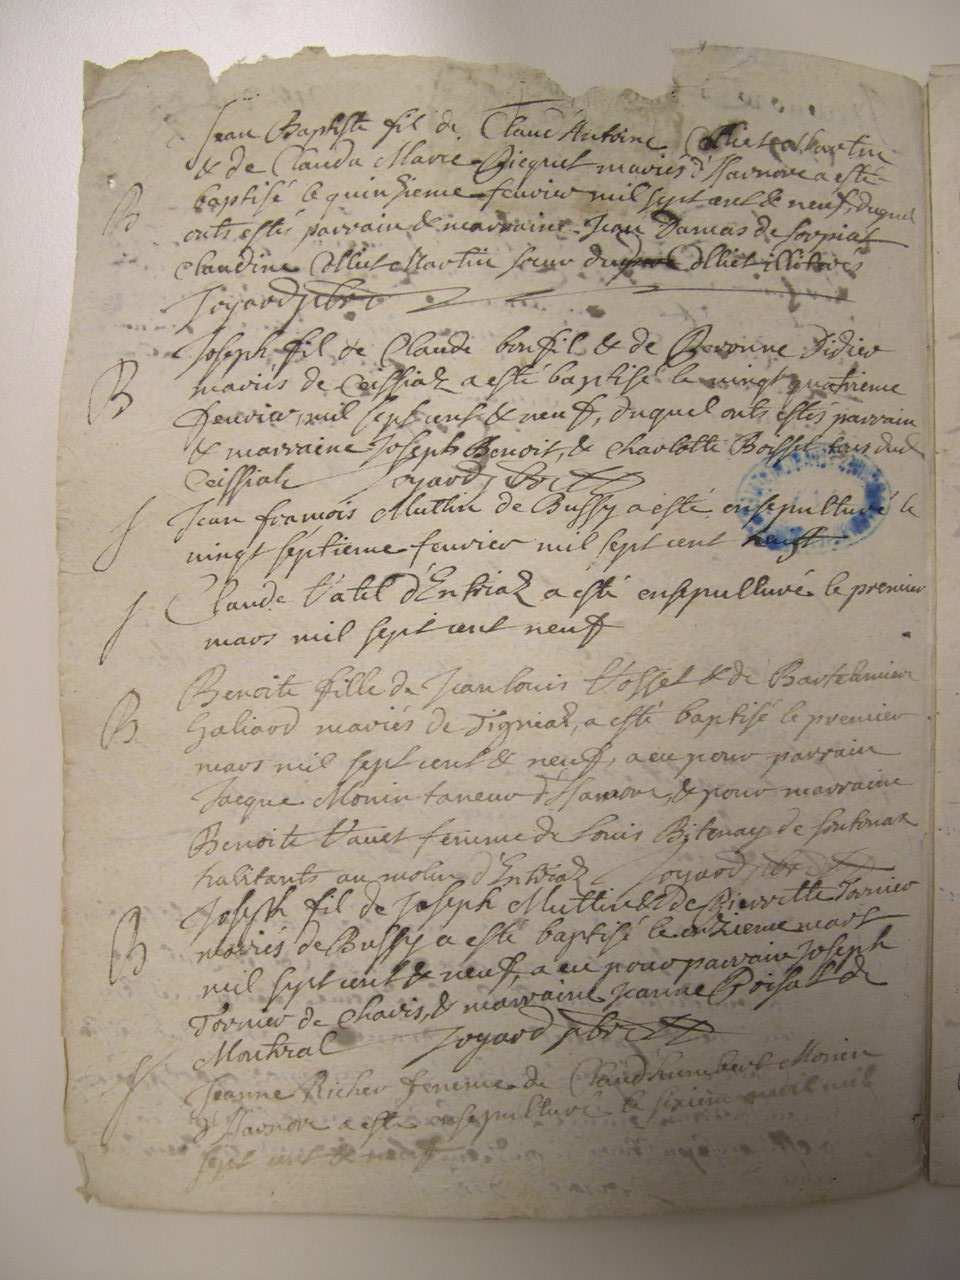 Jean Baptiste fil de Claude Antoine Colliet Martin
& de Clauda Marie mariés d'Isarnore a esté
B baptisé le quinzieme feuvier mil sept cent & neuf, duquel
onts estés parrain & marraine Jean Damas de
Claudine Colliet Martin sœur dud Colliet illiterés
Joyard pbre
Joseph fil de Claude bonfil & de Didier
B mariés de Ceissiaz a esté baptisé le vingt quatrieme
feuvier, mil sept cent & neuf, duquel onts estés parrain
& marraine Joseph Benoit, & Charlotte tous dud
Ceissiaz Joyard pbre
S Jean francois Muttin de Bussy a esté ensepulturé le
vingt septieme feuvier mil sept cent neuf
S Claude Vatel d'Entriaz a esté ensepulturé le premier
mars mil sept cent neuf
Benoite fille de Jean louis Vosset & de Bartelemiere
B Galiard mariés de Tigniaz, a esté baptisé le premier
mars mil sept cent & neuf, a eu pour parrain
Jacque Monin taneur d'Isarnore, & pour marraine
Benoite femme de Louis de
habitants au molin d'Entriaz Joyard pbre
Joseph fil de Joseph Muttin & de Pierrette Tornier
B mariés de Bussy a esté baptisé le onzieme mart
mil sept cent & neuf, a eu pour parrain Joseph
Tornier de Charis, & marraine Jeanne de
Montreal Joyard pbre
S Jeanne Richer femme de Claude humbert Monin
d'Isarnore a esté ensepulturé le sixiem avril mil
sept cent & neuf